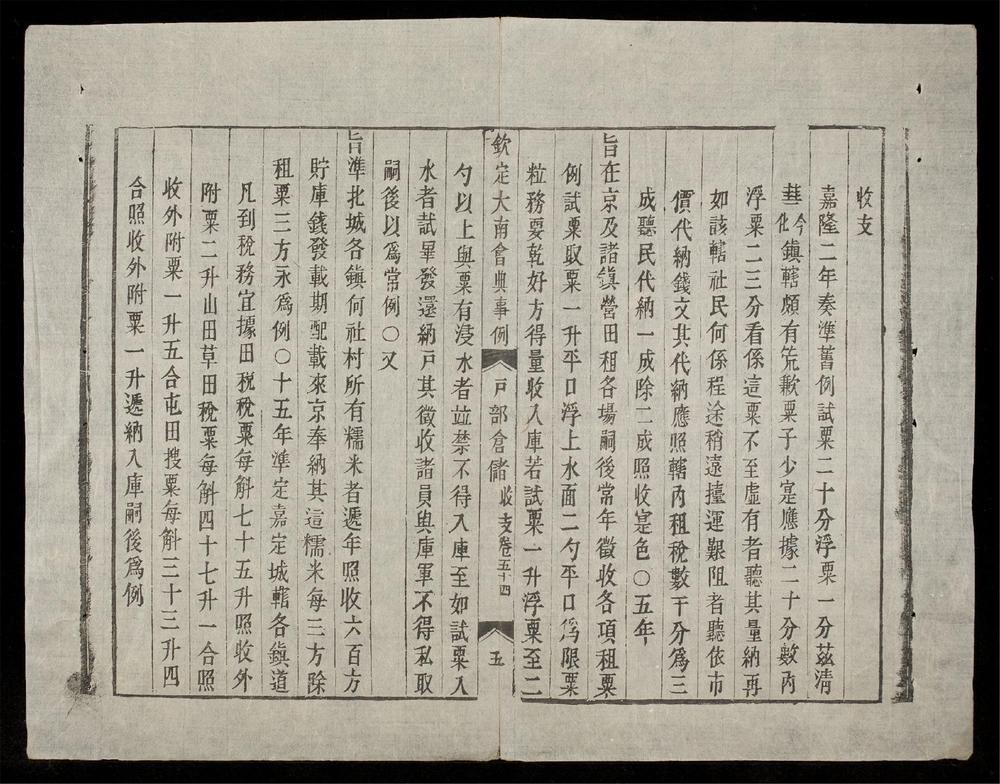 收支
嘉隆二年奏準舊例試粟二十分浮粟一分茲清
華今化鎮轄頗有荒歉粟子少寔應據二十分數內
浮粟二三分看係這粟不至虛有者聽其量納再
如該轄社民何係程途稍遠擡運艱阻者聽依市
價代納錢文其代納應照轄內租稅數干分爲三
成聽民代納一成除二成照收寔色〇五年
旨在京及諸鎮營田租各場嗣後常年徵收各項租粟
例試粟取粟一升平口浮上水面二勺平口爲限粟
粒務要乾好方得量收入庫若試粟一升浮粟至二
欽定大南會典事例 戶部倉儲 收支卷五十四 五
勺以上與粟有浸水者竝禁不得入庫至如試粟入
水者試畢發還納戶其徵收諸員與庫軍不得私取
嗣後以爲常例〇又
旨準北城各鎮何社村所有糯米者遞年照收六百方
貯庫錢發載期配載來京奉納其這糯米每三方除
租粟三方永爲例〇十五年準定嘉定城轄各鎮道
凡到稅務宜據田稅稅粟每斛七十五升照收外
附粟二升山田草田稅粟每斛四十七升一合照
收外附粟一升五合屯田搜粟每斛三十三升四
合照收外附粟一升遞納入庫嗣後爲例